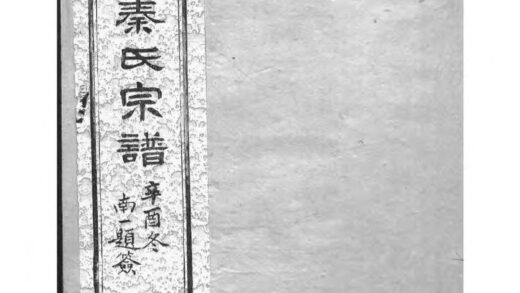 秦氏宗譜
辛酉冬
南一題簽